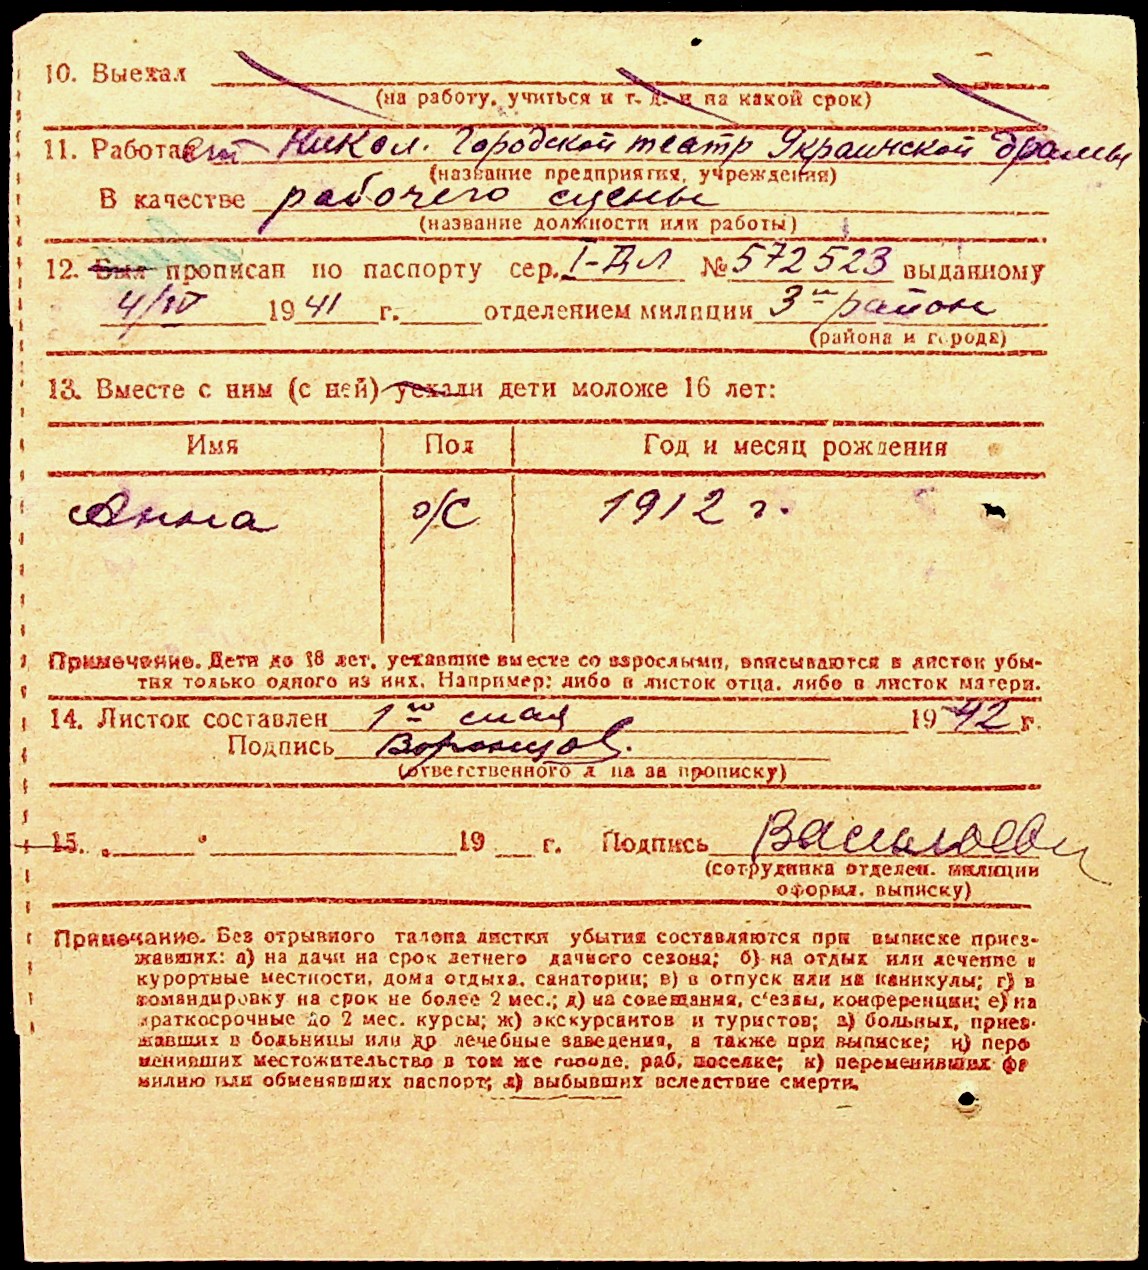 10. Выехал
(на работу, учиться и т. д. и на какой срок)
11. Работает Никол. Городской театр Украинской драмы
(название предприятия, учреждения)
В качестве рабочего сцены
(название должности или работы)
12. Был прописан по паспорту сер. I-ДЛ № 572523 выданному
4/IV 1941 г. отделением милиции 3м район
(района и города)
13. Вместе с ним (с ней) уехали дети моложе 16 лет:
Имя Пол Год и месяц рождения
Анна ж 1912 г.
Примечание. Дети до 18 лет, уехавшие вместе со взрослыми, вписываются в листок убы-
тия только одного из них. Например: либо в листок отца, либо в листок матери.
14. Листок составлен 1го мая 1942 г.
Подпись Воронцов.
(ответственного л ца за прописку)
15. „ “ 19 г. Подпись
(сотрудника отделен. милиции
оформл. выписку)
Примечание. Без отрывного талона листки убытия составляются при выписке приез-
жавших: а) на дачи на срок летнего дачного сезона; б) на отдых или лечение в
курортные местности, дома отдыха, санатории; в) в отпуск или на каникулы; г) в
командировку на срок не более 2 мес.; д) на совещания, с'езды, конференции; е) на
краткосрочные до 2 мес. курсы; ж) экскурсантов и туристов; з) больных, приез-
жавших в больницы или др лечебные заведения, а также при выписке; и) пере
менивших местожительство в том же городе, раб. поселке; к) переменивших фа
милию или обменявших паспорт; л) выбывших вследствие смерти.